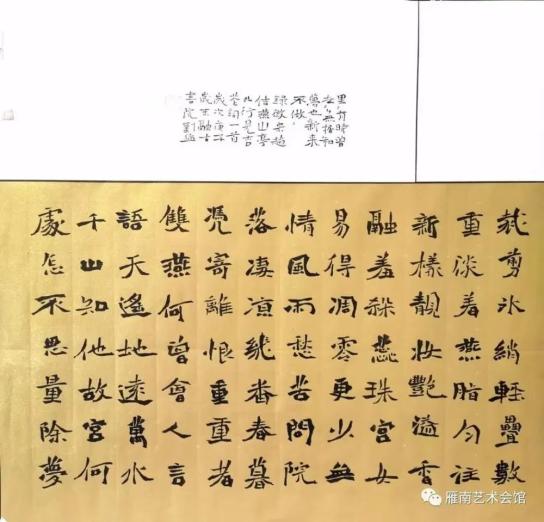 裁剪冰綃輕疊數
重淡着燕脂勻注
新樣靚妝艷溢香
融羞殺蕊珠宮女
易得凋零更少無
情風雨愁苦問院
落凄涼幾番春暮
憑寄離恨重重者
雙燕何曾會人言
語天遙地遠萬水
千山知他故宮何
處怎不思量除夢
里有時曾
去無據和
夢也新来
不做
佶燕山亭
歲次庚子
雁南艺术会馆